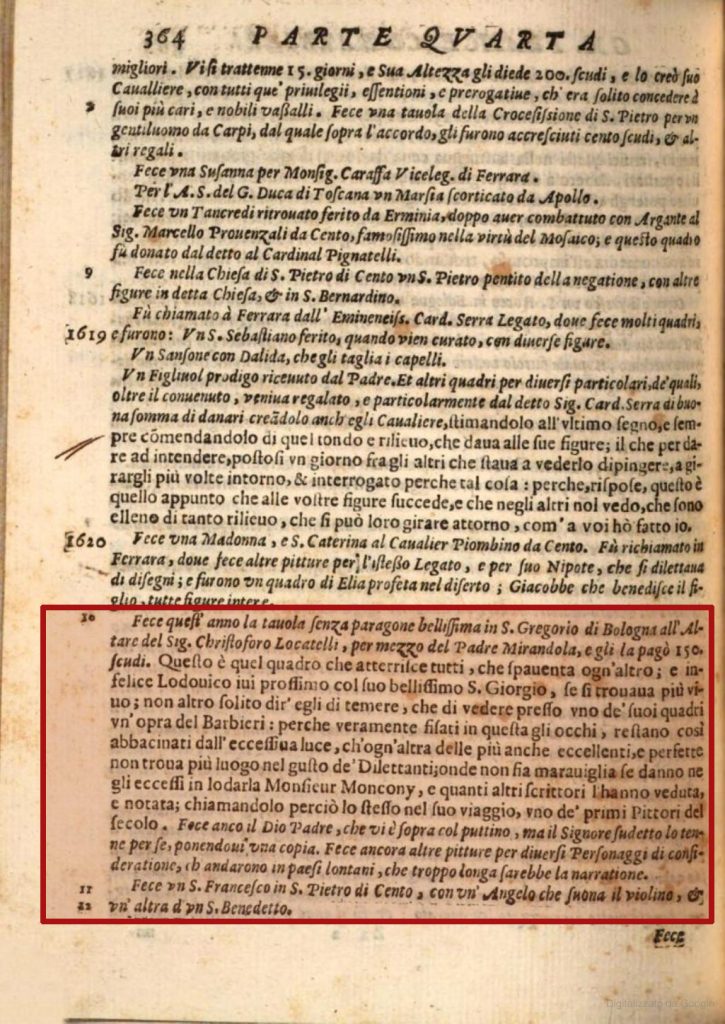 364 PARTE QVARTA
migliori. Vi si trattenne 15. giorni, e Sua Altezza gli diede 200. scudi, e lo creò suo
Caualliere, con tutti que' priuilegii, essentioni, e prerogatiue, ch' era solito concedere à
suoi più cari, e nobili vassalli. Fece vna tauola della Crocefissione di S. Pietro per vn
gentiluomo da Carpi, dal quale sopra l'accordo, gli furono accresciuti cento scudi, & al-
tri regali.
Fece vna Susanna per Monsig. Caraffa Viceleg. di Ferrara.
Per l'A. S. del G. Duca di Toscana vn Marsia scorticato da Apollo.
Fece vn Tancredi ritrouato ferito da Erminia, doppo auer combattuto con Argante al
Sig. Marcello Prouenzali da Cento, famosissimo nella virtù del Mosaico; e questo quadro
fù donato dal detto al Cardinal Pignatelli.
9 Fece nella Chiesa di S. Pietro di Cento vn S. Pietro pentito della negatione, con altre
figure in detta Chiesa, & in S. Bernardino.
Fù chiamato à Ferrara dall' Emineneiss. Card. Serra Legato, doue fece molti quadri,
1619 e furono: Vn S. Sebastiano ferito, quando vien curato, con diuerse figure.
Vn Sansone con Dalida, che gli taglia i capelli.
Vn Figliuol prodigo riceuuto dal Padre. Et altri quadri per diuersi particolari, de' quali,
oltre il conuenuto, veniua regalato, e particolarmente dal detto Sig. Card. Serra di buo-
na somma di danari creādolo anch' egli Caualiere, stimandolo all'vltimo segno, e sem-
pre comendandolo di quel tondo e rilieuo, che daua alle sue figure; il che per da-
re ad intendere, postosi vn giorno fra gli altri che staua a vederlo dipingere, a gi-
rargli più volte intorno, & interrogato perche tal cosa: perche, rispose, questo è
quello appunto che alle vostre figure succede, e che negli altri nol vedo, che sono
elleno di tanto rilieuo, che si può loro girare attorno, com' a voi hò fatto io.
1620 Fece vna Madonna, e S. Caterina al Caualier Piombino da Cento. Fù richiamato in
Ferrara, doue fece altre pitture per l'istesso Legato, e per suo Nipote, che si dilettaua
di disegni; e furono vn quadro di Elia profeta nel diserto; Giacobbe che benedisce il fi-
glio, tutte figure intere.
10 Fece quest' anno la tauola senza paragone bellissima in S. Gregorio di Bologna all'Al-
tare del Sig. Christoforo Locatelli, per mezzo del Padre Mirandola, e gli la pagò 150.
scudi. Questo è quel quadro che atterrisce tutti, che spauenta ogn'altro; e in-
felice Lodouico iui prossimo col suo bellissimo S. Giorgio, se si trouaua più vi-
uo; non altro solito dir' egli di temere, che di vedere presso vno de' suoi quadri
vn' opra del Barbieri: perche veramente fisati in questa gli occhi, restano così
abbacinati dall'eccessiua luce, ch'ogn'altra delle più anche eccellenti, e perfette
non troua più luogo nel gusto de' Dilettanti; onde non fia marauiglia se danno ne
gli eccessi in lodarla Monsieur Moncony, e quanti altri scrittori l'hanno veduta,
e notata; chiamandolo perciò lo stesso nel suo viaggio, vno de' primi Pittori del
secolo. Fece anco il Dio Padre, che vi è sopra col puttino, ma il Signore sudetto lo ten-
ne per se, ponendoui vna copia. Fece ancora altre pitture per diuersi Personaggi di consi-
deratione, ch andarono in paesi lontani, che troppo longa sarebbe la narratione.
11 Fece vn S. Francesco in S. Pietro di Cento, con vn' Angelo che suona il violino, &
12 vn' altra d vn S. Benedetto.
Fece
Digitalizzato da Google